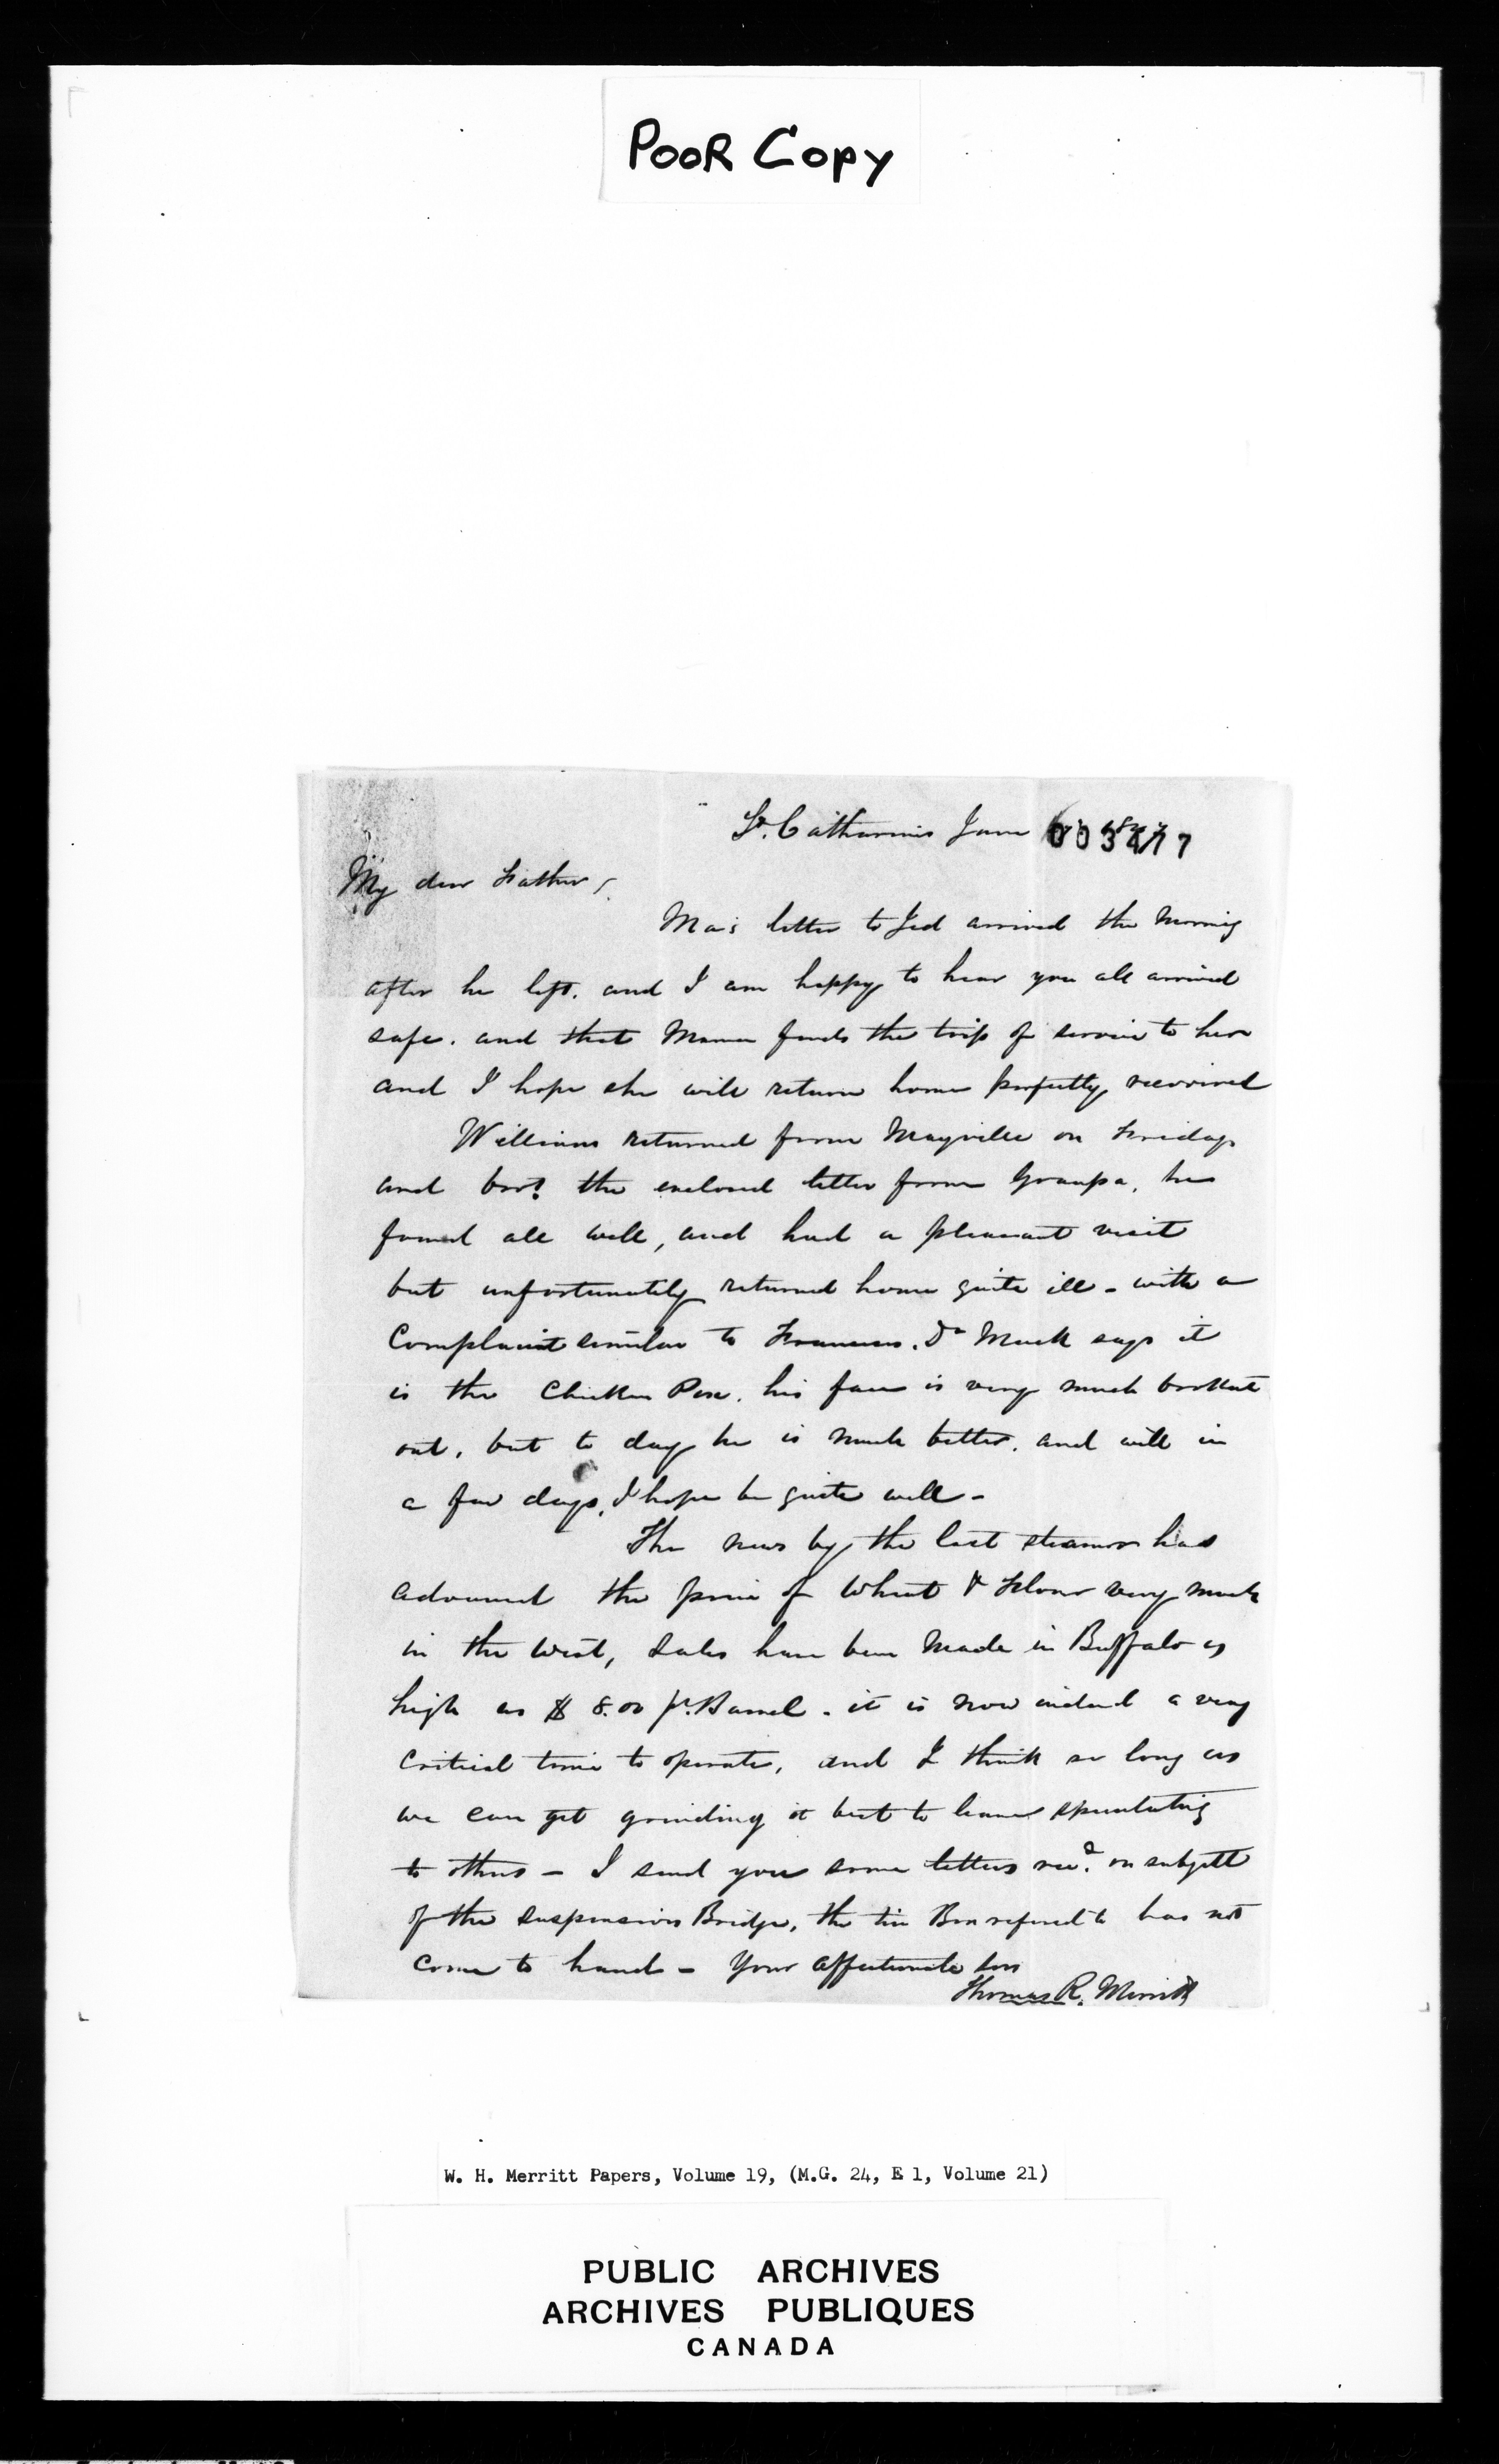 POOR COPY
St. Catharines June
003477
My dear Father,
Ma's letter to Jed arrived the morning
after he left. and I am happy to hear you all arrived
safe. and that Mama finds the trip of service to her
and I hope she will return home perfectly recovered
William returned from Mayville on Friday
and bro.t the enclosed letter from Granpa, he
found all well, and had a pleasant visit
but unfortunately returned home quite ill - with a
Complaint similar to Dr Mack says it
is the Chicken Pox. his face is very much broken
out, but to day he is much better. and will in
a few days, I hope be quite well -
The news by the last steamer has
advanced the price of Wheat & Flour very much
in the West, Sales have been made in Buffalo as
high as $ 8.00 pr. Barrel. it is now indeed a very
critical time to operate, and I think so long as
we can get grinding it best to leave speculating
to others - I send you some letters rec.d on subject
of the Suspension Bridge, the tin Box refered to has not
come to hand - Your affectionate Son
Thomas R. Merritt
W. H. Merritt Papers, Volume 19, (M.G. 24, E 1, Volume 21)
PUBLIC ARCHIVES
ARCHIVES PUBLIQUES
CANADA